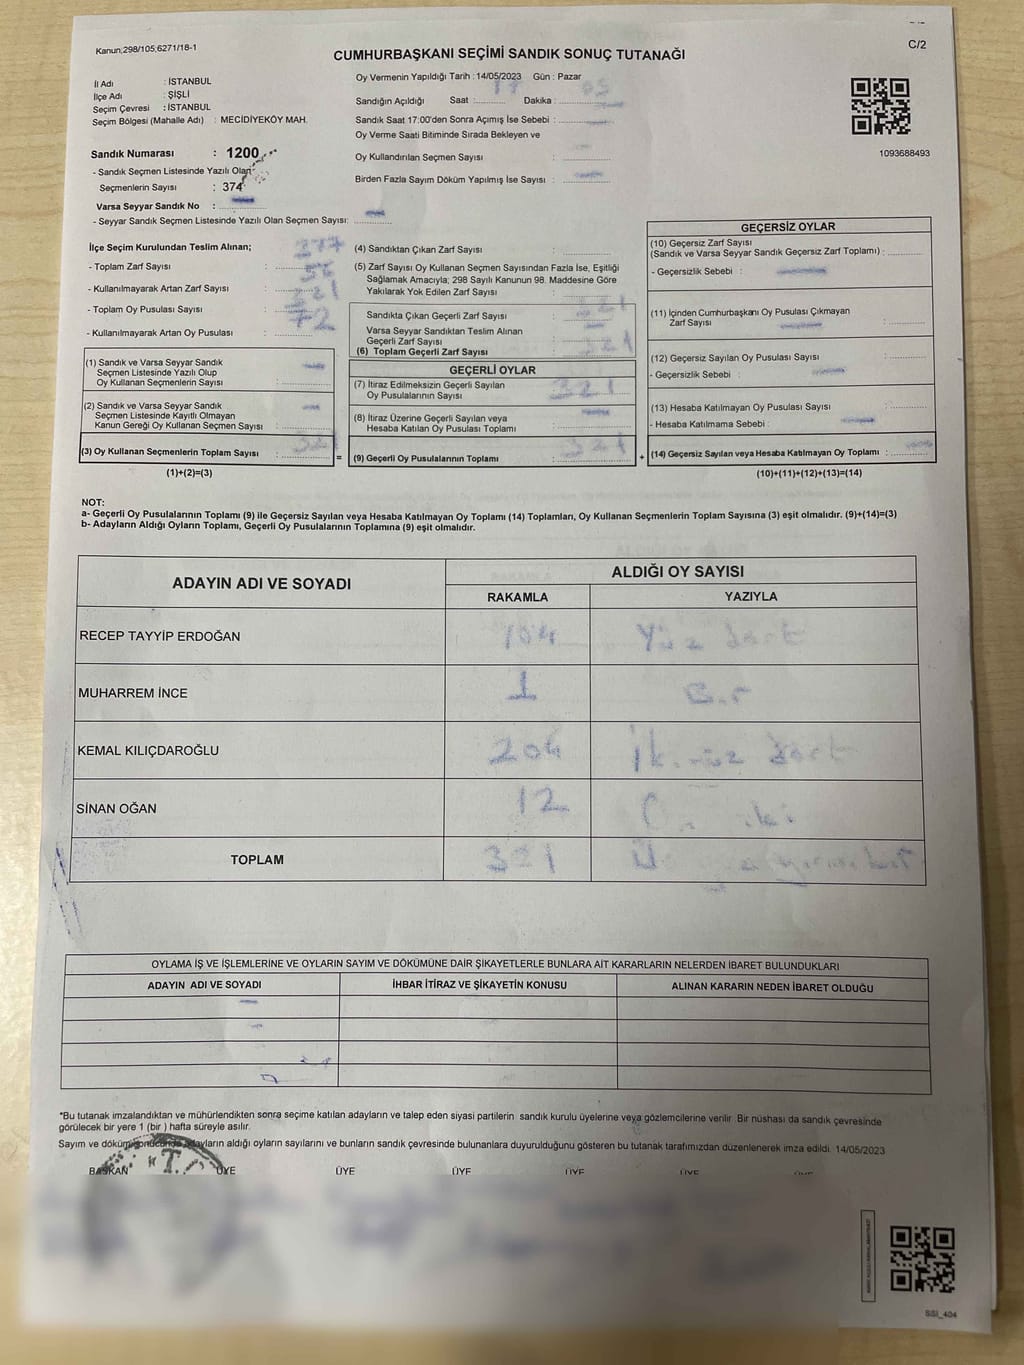 C/2
Kanun;298/105;6271/18-1
CUMHURBAŞKANI SEÇİMİ SANDIK SONUÇ TUTANAĞI
İl Adı : İSTANBUL
İlçe Adı : ŞİŞLİ
Seçim Çevresi : İSTANBUL
Seçim Bölgesi (Mahalle Adı) : MECİDİYEKÖY MAH.
Oy Vermenin Yapıldığı Tarih : 14/05/2023 Gün : Pazar
Sandığın Açıldığı Saat :.......... 17 Dakika :.......... 05
Sandık Saat 17:00'den Sonra Açımış İse Sebebi :
Oy Verme Saati Bitiminde Sırada Bekleyen ve
Oy Kullandırılan Seçmen Sayısı :
Birden Fazla Sayım Döküm Yapılmış İse Sayısı :
1093688493
Sandık Numarası : 1200
- Sandık Seçmen Listesinde Yazılı Olan
Seçmenlerin Sayısı : 374
Varsa Seyyar Sandık No :
- Seyyar Sandık Seçmen Listesinde Yazılı Olan Seçmen Sayısı:
İlçe Seçim Kurulundan Teslim Alınan;
- Toplam Zarf Sayısı : 377
- Kullanılmayarak Artan Zarf Sayısı :
- Toplam Oy Pusulası Sayısı :
- Kullanılmayarak Artan Oy Pusulası : 72
(1) Sandık ve Varsa Seyyar Sandık
Seçmen Listesinde Yazılı Olup
Oy Kullanan Seçmenlerin Sayısı :
(2) Sandık ve Varsa Seyyar Sandık
Seçmen Listesinde Kayıtlı Olmayan
Kanun Gereği Oy Kullanan Seçmen Sayısı :
(3) Oy Kullanan Seçmenlerin Toplam Sayısı : 321
(1)+(2)=(3)
(4) Sandıktan Çıkan Zarf Sayısı :
(5) Zarf Sayısı Oy Kullanan Seçmen Sayısından Fazla İse, Eşitliği
Sağlamak Amacıyla; 298 Sayılı Kanunun 98. Maddesine Göre
Yakılarak Yok Edilen Zarf Sayısı :
Sandıkta Çıkan Geçerli Zarf Sayısı : 321
Varsa Seyyar Sandıktan Teslim Alınan
Geçerli Zarf Sayısı :
(6) Toplam Geçerli Zarf Sayısı : 321
GEÇERLİ OYLAR
(7) İtiraz Edilmeksizin Geçerli Sayılan
Oy Pusulalarının Sayısı : 321
(8) İtiraz Üzerine Geçerli Sayılan veya
Hesaba Katılan Oy Pusulası Toplamı :
= (9) Geçerli Oy Pusulalarının Toplamı : 321
GEÇERSİZ OYLAR
(10) Geçersiz Zarf Sayısı
(Sandık ve Varsa Seyyar Sandık Geçersiz Zarf Toplamı) :
- Geçersizlik Sebebi :
(11) İçinden Cumhurbaşkanı Oy Pusulası Çıkmayan
Zarf Sayısı :
(12) Geçersiz Sayılan Oy Pusulası Sayısı :
- Geçersizlik Sebebi :
(13) Hesaba Katılmayan Oy Pusulası Sayısı :
- Hesaba Katılmama Sebebi :
+ (14) Geçersiz Sayılan veya Hesaba Katılmayan Oy Toplamı :
(10)+(11)+(12)+(13)=(14)
NOT:
a- Geçerli Oy Pusulalarının Toplamı (9) ile Geçersiz Sayılan veya Hesaba Katılmayan Oy Toplamı (14) Toplamları, Oy Kullanan Seçmenlerin Toplam Sayısına (3) eşit olmalıdır. (9)+(14)=(3)
b- Adayların Aldığı Oyların Toplamı, Geçerli Oy Pusulalarının Toplamına (9) eşit olmalıdır.
ADAYIN ADI VE SOYADI
ALDIĞI OY SAYISI
RAKAMLA YAZIYLA
RECEP TAYYİP ERDOĞAN 104 Yüz dört
MUHARREM İNCE 1 Bir
KEMAL KILIÇDAROĞLU 204 İkiyüz dört
SİNAN OĞAN 12 On iki
TOPLAM 321
OYLAMA İŞ VE İŞLEMLERİNE VE OYLARIN SAYIM VE DÖKÜMÜNE DAİR ŞİKAYETLERLE BUNLARA AİT KARARLARIN NELERDEN İBARET BULUNDUKLARI
ADAYIN ADI VE SOYADI İHBAR İTİRAZ VE ŞİKAYETİN KONUSU ALINAN KARARIN NEDEN İBARET OLDUĞU
*Bu tutanak imzalandıktan ve mühürlendikten sonra seçime katılan adayların ve talep eden siyasi partilerin sandık kurulu üyelerine veya gözlemcilerine verilir. Bir nüshası da sandık çevresinde
görülecek bir yere 1 (bir ) hafta süreyle asılır.
Sayım ve döküm sonucunda adayların aldığı oyların sayılarını ve bunların sandık çevresinde bulunanlara duyurulduğunu gösteren bu tutanak tarafımızdan düzenlenerek imza edildi. 14/05/2023
BAŞKAN ÜYE ÜYE ÜYE ÜYE ÜYE ÜYE
T.C
SSI_404